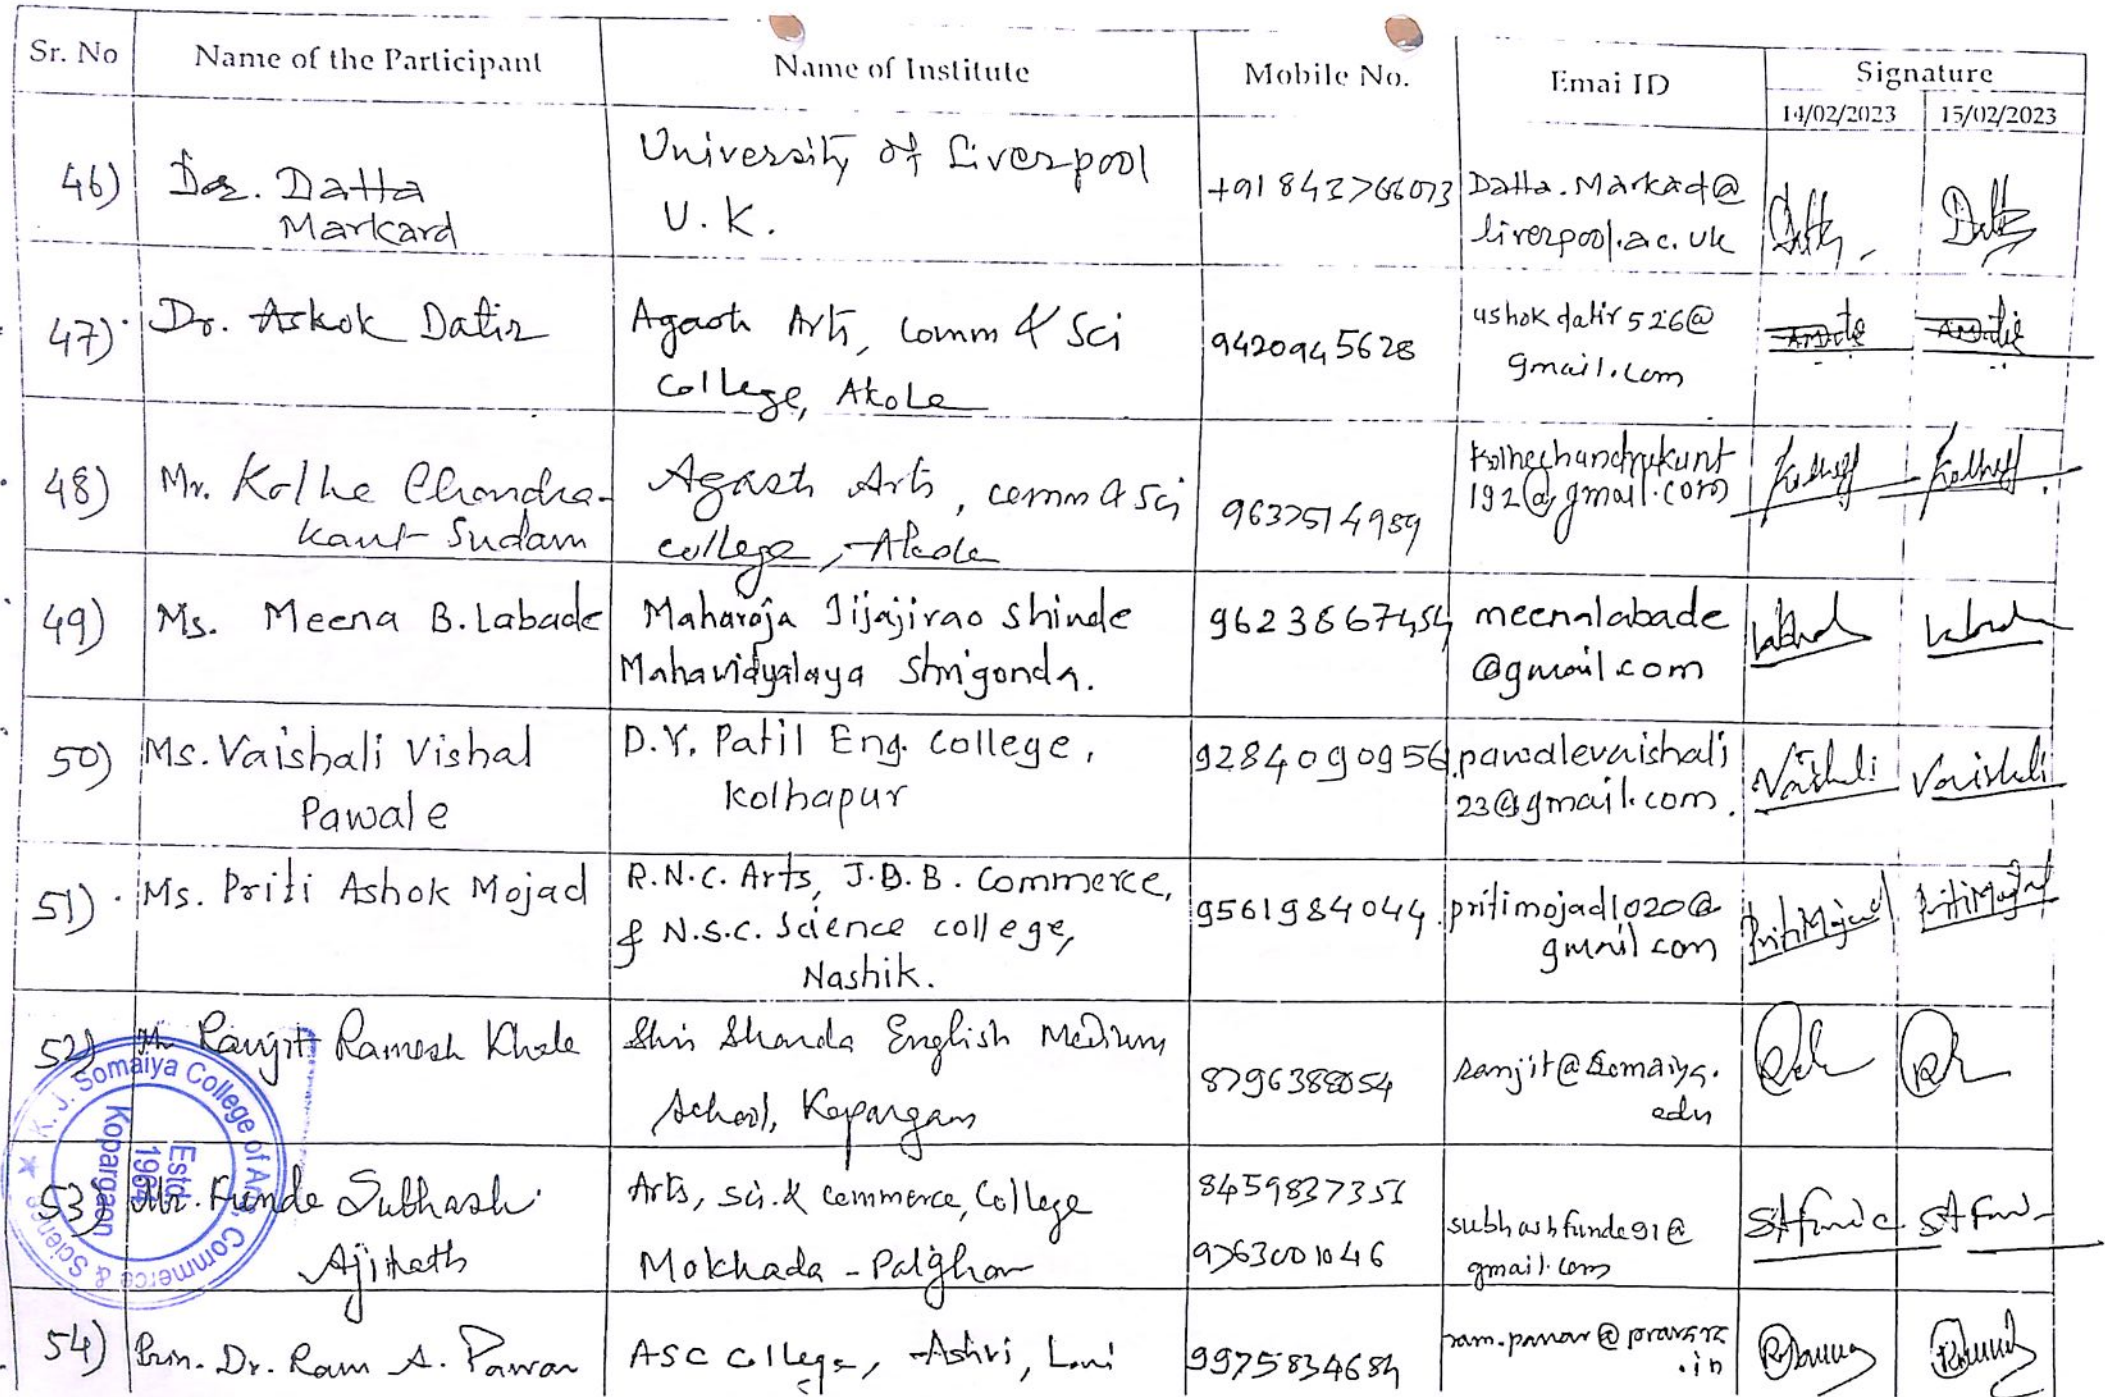 Sr. No Name of the Participant Name of Institute Mobile No. Emai ID Signature
14/02/2023 15/02/2023
46) Dr. Datta Markard
University of Liverpool
U. K.
+91 8437666073
Datta.Markad@
liverpool.ac.uk
47) Dr. Askok Datir
Agasti Arts, Comm & Sci
College, Akole
9420945628
ashokdatir526@
gmail.com
48) Mr. Kolhe Chandra-
kant Sudam
Agasti Arts, comm & Sci
college, Akole
9637514989
kolhechandrakant
192@gmail.com
49) Ms. Meena B. Labade
Maharaja Jijajirao Shinde
Mahavidyalaya Shrigonda.
9623867454
meenalabade
@gmail.com
50) Ms. Vaishali Vishal
Pawale
D.Y. Patil Eng. College,
Kolhapur
9284090956
pawalevaishali
23@gmail.com.
Vaishali Vaishali
51) Ms. Priti Ashok Mojad
R.N.C. Arts, J.D.B. Commerce,
& N.S.C. Science college,
Nashik.
9561984044
pritimojad1020@
gmail.com
PritiMojad PritiMojad
52) Mr Ranjit Ramesh Khale
Shri Sharda English Medium
School, Kopargaon
8796388054
ranjit@somaiya.
edu
53) Mr. Funde Subhash
Ajinath
Arts, Sci. & Commerce, College
Mokhada - Palghar
8459837351
9763001046
subhashfunde91@
gmail.com
54) Prin. Dr. Ram A. Pawar
ASC College, Ashvi, Loni
9975834684
ram.pawar@pravara
.in
K. J. Somaiya College of Arts, Commerce & Science
Estd.
1964
Kopargaon